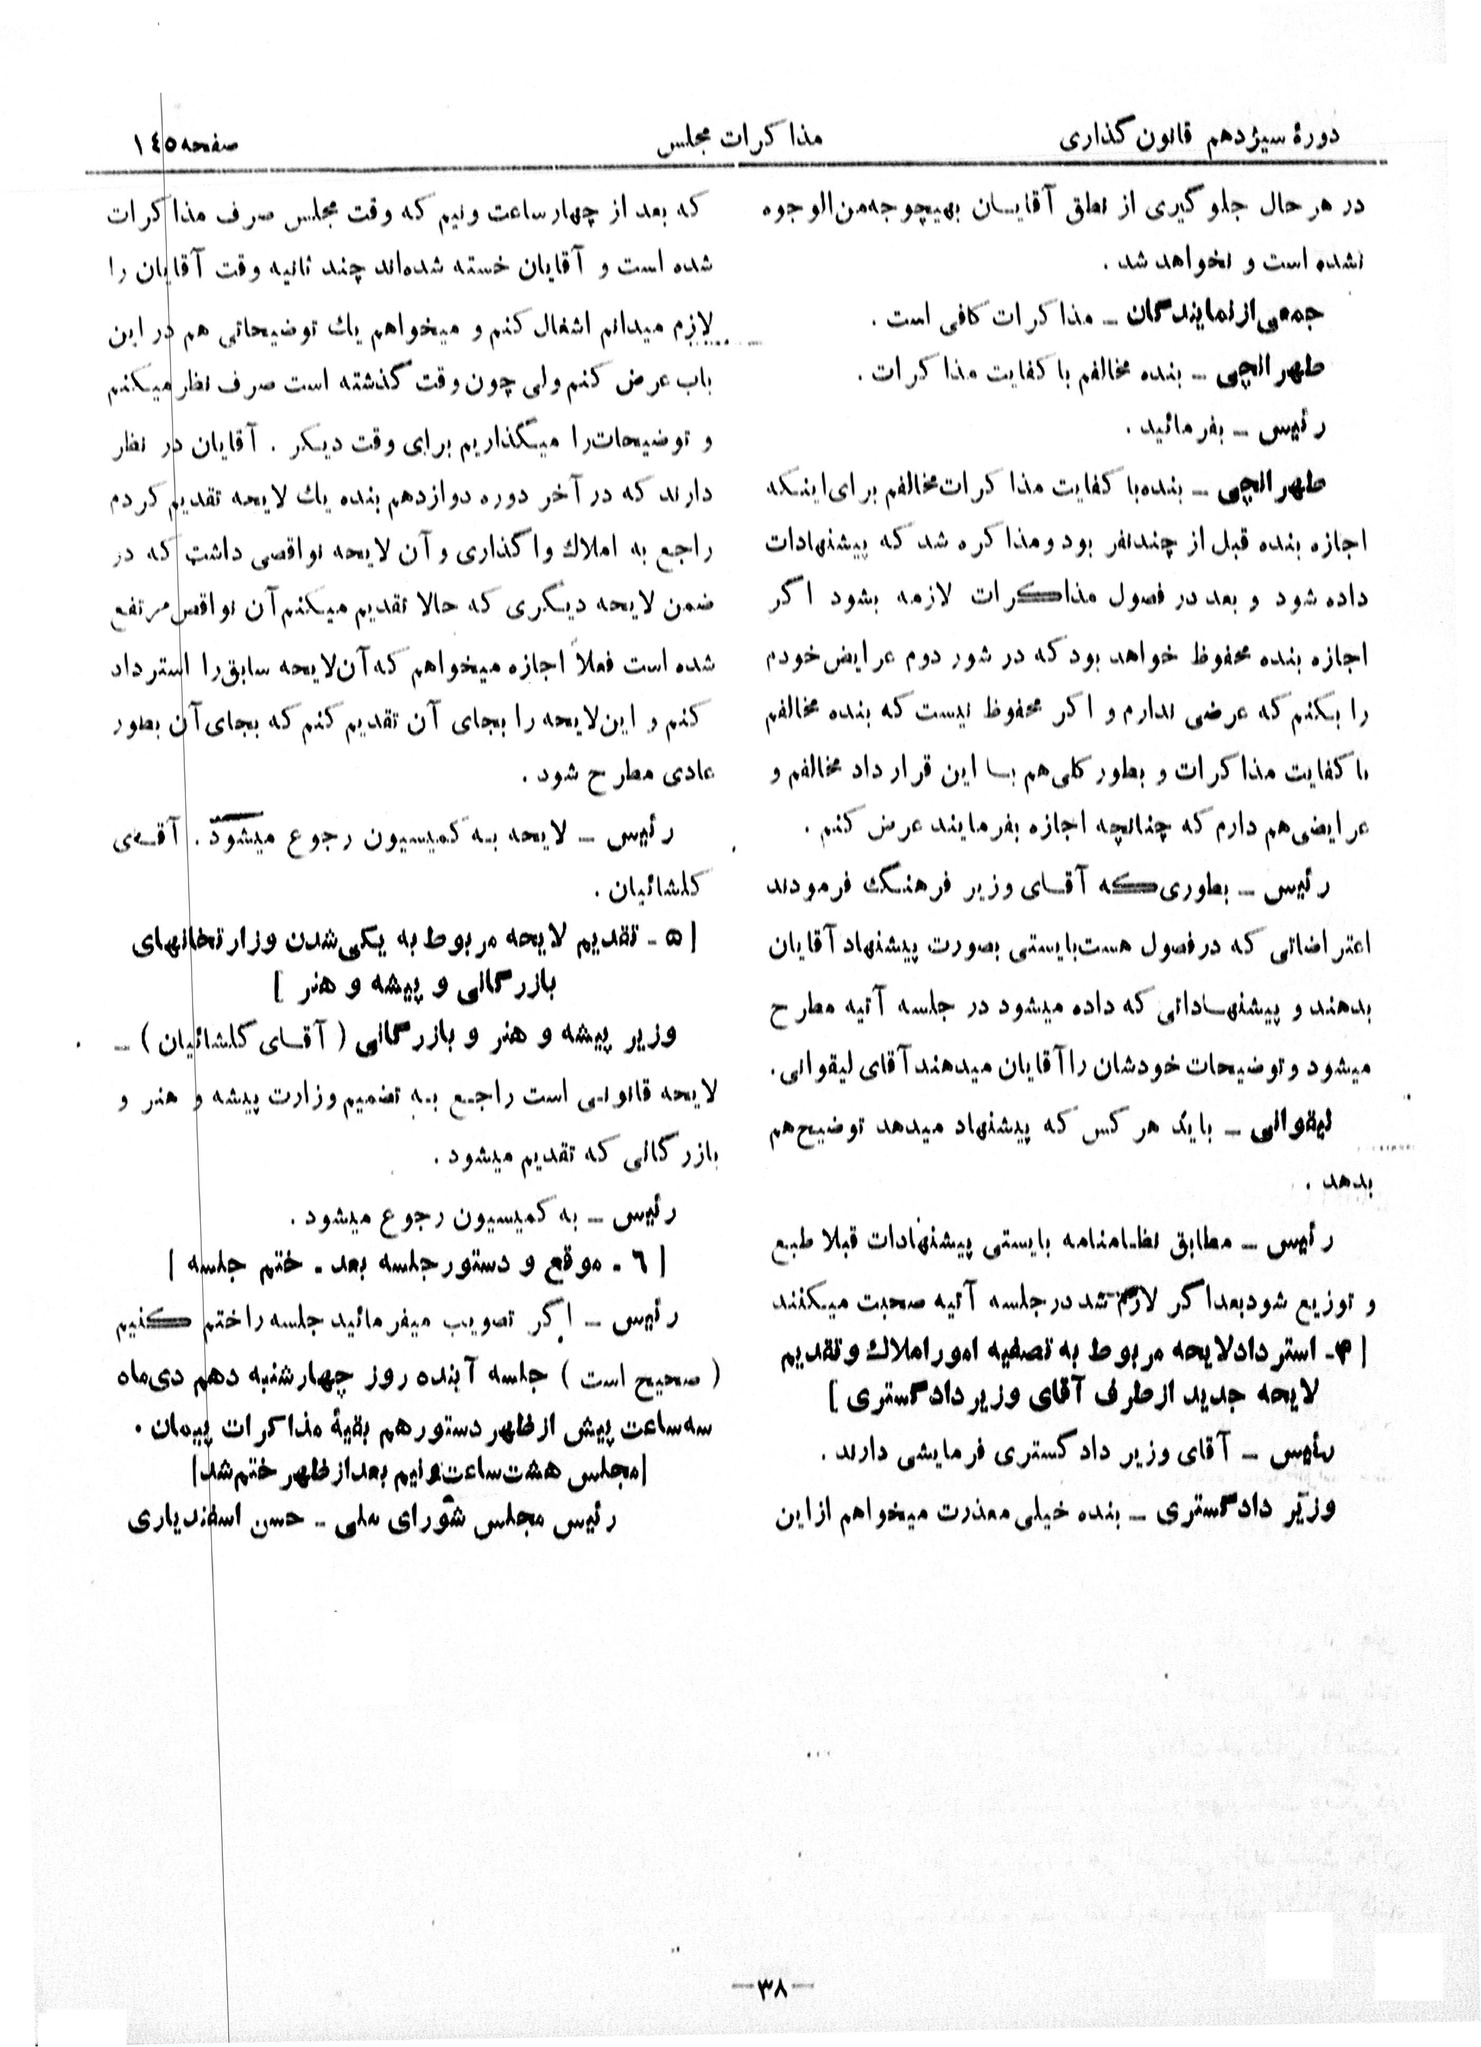 دورهٔ سیزدهم قانون گذاری
مذاکرات مجلس
صفحه ١٤٥
در هر حال جلوگیری از نطق آقایـان بهیچوجه‌من‌الوجوه
نشده است و نخواهد شد .
جمعی از نمایندگان ـ مذاکرات کافی است .
طهرانچی ـ بنده مخالفم با کفایت مذاکرات .
رئیس ـ بفرمائید .
طهرانچی ـ بنده با کفایت مذاکرات مخالفم برای اینکه
اجازه بنده قبل از چندنفر بود و مذاکره شد که پیشنهادات
داده شود و بعد در فصول مذاکرات لازمه بشود اگر
اجازه بنده محفوظ خواهد بود که در شور دوم عرایض خودم
را بکنم که عرضی ندارم و اگر محفوظ نیست که بنده مخالفم
با کفایت مذاکرات و بطور کلی هم بـا این قرارداد مخالفم و
عرایضی هم دارم که چنانچه اجازه بفرمایند عرض کنم .
رئیس ـ بطوری‌که آقـای وزیر فرهنگ فرمودند
اعتراضاتی که در فصول هست بایستی بصورت پیشنهاد آقایان
بدهند و پیشنهـاداتی که داده میشود در جلسه آتیه مطرح
میشود و توضیحات خودشان را آقایان میدهند آقای لیقوانی.
لیقوانی ـ باید هر کس که پیشنهاد میدهد توضیح هم
بدهد .
رئیس ـ مطابق نظـامنامه بایستی پیشنهادات قبلا طبع
و توزیع شود بعد اگر لازم شد در جلسه آتیه صحبت میکنند
[ ۴ـ استرداد لایحه مربوط به تصفیه امور املاك و تقدیم
لایحه جدید از طرف آقای وزیر دادگستری ]
رئیس ـ آقای وزیر دادگستری فرمایشی دارند .
وزیر دادگستری ـ بنده خیلی معذرت میخواهم از این
که بعد از چهار ساعت و نیم که وقت مجلس صرف مذاکرات
شده است و آقایان خسته شده‌اند چند ثانیه وقت آقایان را
لازم میدانم اشغال کنم و میخواهم یك توضیحاتی هم در این
باب عرض کنم ولی چون وقت گذشته است صرف نظر میکنم
و توضیحات را میگذاریم برای وقت دیگر . آقایان در نظر
دارند که در آخر دوره دوازدهم بنده یك لایحه تقدیم کردم
راجع به املاك واگذاری و آن لایحه نواقصی داشت که در
ضمن لایحه دیگری که حالا تقدیم میکنم آن نواقص مرتفع
شده است فعلاً اجازه میخواهم که آن لایحه سابق را استرداد
کنم و این لایحه را بجای آن تقدیم کنم که بجای آن بطور
عادی مطرح شود .
رئیس ـ لایحه بـه کمیسیون رجوع میشود . آقـای
گلشائیان .
[ ۵ ـ تقدیم لایحه مربوط به یکی شدن وزارتخانهای
بازرگانی و پیشه و هنر ]
وزیر پیشه و هنر و بازرگانی ( آقـای گلشائیان ) ـ
لایحه قانونی است راجـع بـه تضمیم وزارت پیشه و هنر و
بازرگانی که تقدیم میشود .
رئیس ـ به کمیسیون رجوع میشود .
[ ٦ ـ موقع و دستور جلسه بعد ـ ختم جلسه ]
رئیس ـ اگر تصویب میفرمائید جلسه را ختم کنیم
( صحیح است ) جلسه آینده روز چهارشنبه دهم دی‌ماه
سه ساعت پیش از ظهر دستور هم بقیهٔ مذاکرات پیمان .
[مجلس هشت ساعت و نیم بعد از ظهر ختم شد]
رئیس مجلس شورای ملی ـ حسن اسفندیاری
—٣٨—